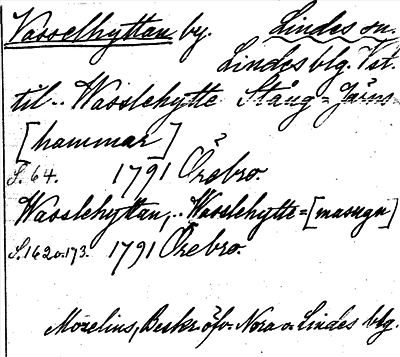 Vasselhyttan by. Lindes sn.
Lindes blg. Vst.
til.. Wasslehytte Stång=Järns
[hammar]
S. 64. 1791 Örebro.
Wasslehyttan,.. Wasslehytte=[masugn]
S. 162 o. 173. 1791 Örebro.
Morelius, Beskr. öfv. Nora o. Lindes blg.